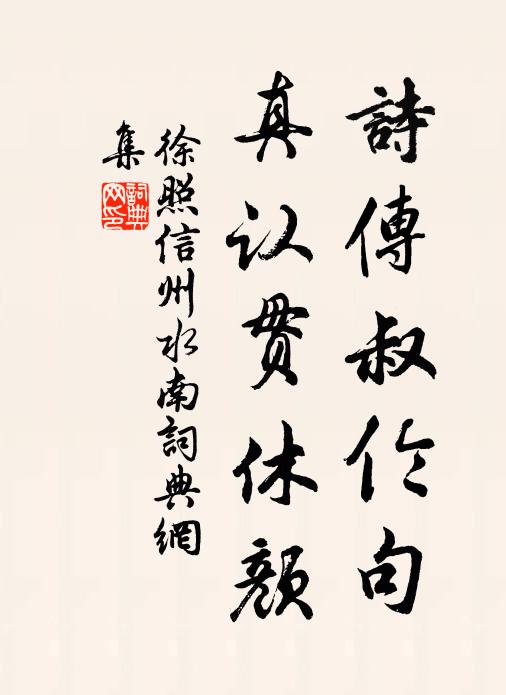 詩傳叔伦句
真认贯休顏
徐照信州水南詞典網
集
詞典網印